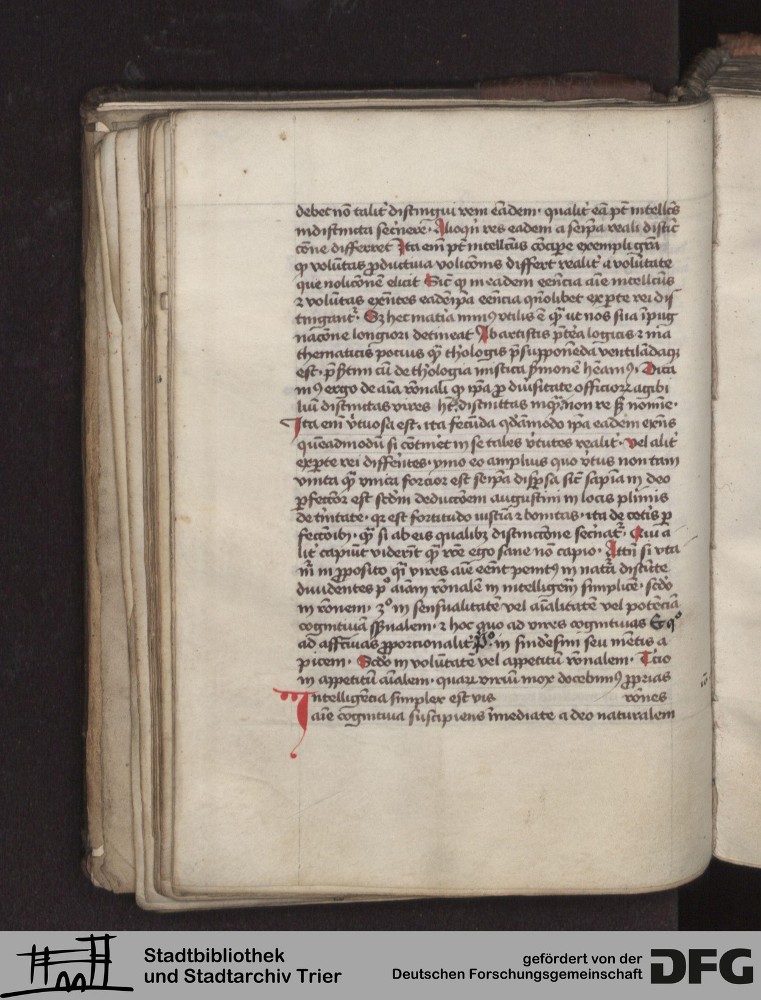 debet nō talit᷑ distingui rem eādem · qualit᷑ eā pt̄ intellc̄s
indistincta sec̄nere · Alioqn̄ res eadem a seip̄a reali distic̄
cōne differret Ita em̄ pt̄ intellcūs cōcipe exempli grā
ꝙ volūtas ꝓductiua volicōnis differt realit᷑ a volūtate
que nolicōnē elicit Sic̄ ꝙ in eadem eēncia aīe intellcūs
⁊ volūtas exn̄tes eadēip̄a eēncia qn̄olibet ex ꝑte rei dis
tīgant᷑ · Sꝫ hec mat̄ia minꝰ vtilis ē qꝫ ut nos sua īpug
nacōne longiori detineat Ab artistis p̄tea logicis ⁊ ma
thematicis pocius qꝫ th̓ologis p̄supponēda ventilādaqꝫ
est · p̄s̄tim cū de th̓ologia mistica s̄monē h̄eamꝰ · Dica
mꝰ ergo de aīa rōnali ꝙ ip̄a ꝓ diu̓sitate officioꝝ ⁊ agibi
liū distinctas vires hꝫ · distinctas inqꝫ non re sꝫ noīe ·
Ita em̄ v̓tuosa est · ita fecūda qdāmodo ip̄a eadem exn̄s
quēadmodū si cōtinēt in se tales v̓tutes realit᷑ · vel alit᷑
ex ꝑte rei diffēntes · ymo eo amplius quo v̓tus non tam
vnita qꝫ vnica forcior est seip̄a disp̄sa sic̄ sapīa in deo
ꝑfeccior est scd̄m deduccōem augustini in locis plimis
de t̓nitate · qr est fortitudo iusticia ⁊ bonitas · ita de cet̄is ꝑ
feccōibꝰ · qꝫ si ab eis qualibꝫ distinccōne sec̄nat᷑ · Qui a
lit᷑ capiūt viderint qꝫ rōe ego sane nō capio · Attn̄ si vta
m̄ in ꝓposito qͣsi vires aīe eēnt penitꝰ in nat̄a distīcte
diuidentes pᵒ aīam rōnalē in intelligēn simplicē · scd̄o
in rōnem · 3ᵒ in sensualitatē vel aīalitatē vel potēciā
cognitiuā sn̄sualem · ⁊ hoc quo ad vires cognitiuas Et qᵒ
ad affc̄iuas ꝓporcionalit᷑ Pᵒ · in sindesim seu mētis a
picem · Scd̄o in volūtatē vel appetitū rōnalem · Tcio
in appetitū aīalem · quaꝝ viriū mox docebimꝰ ꝓprias
Intelligēcia simplex est vis rōnes
aīe cognitiua suscipiens īmediate a deo naturalem
Stadtbibliothek
und Stadtarchiv Trier
gefördert von der
Deutschen Forschungsgemeinschaft
DFG